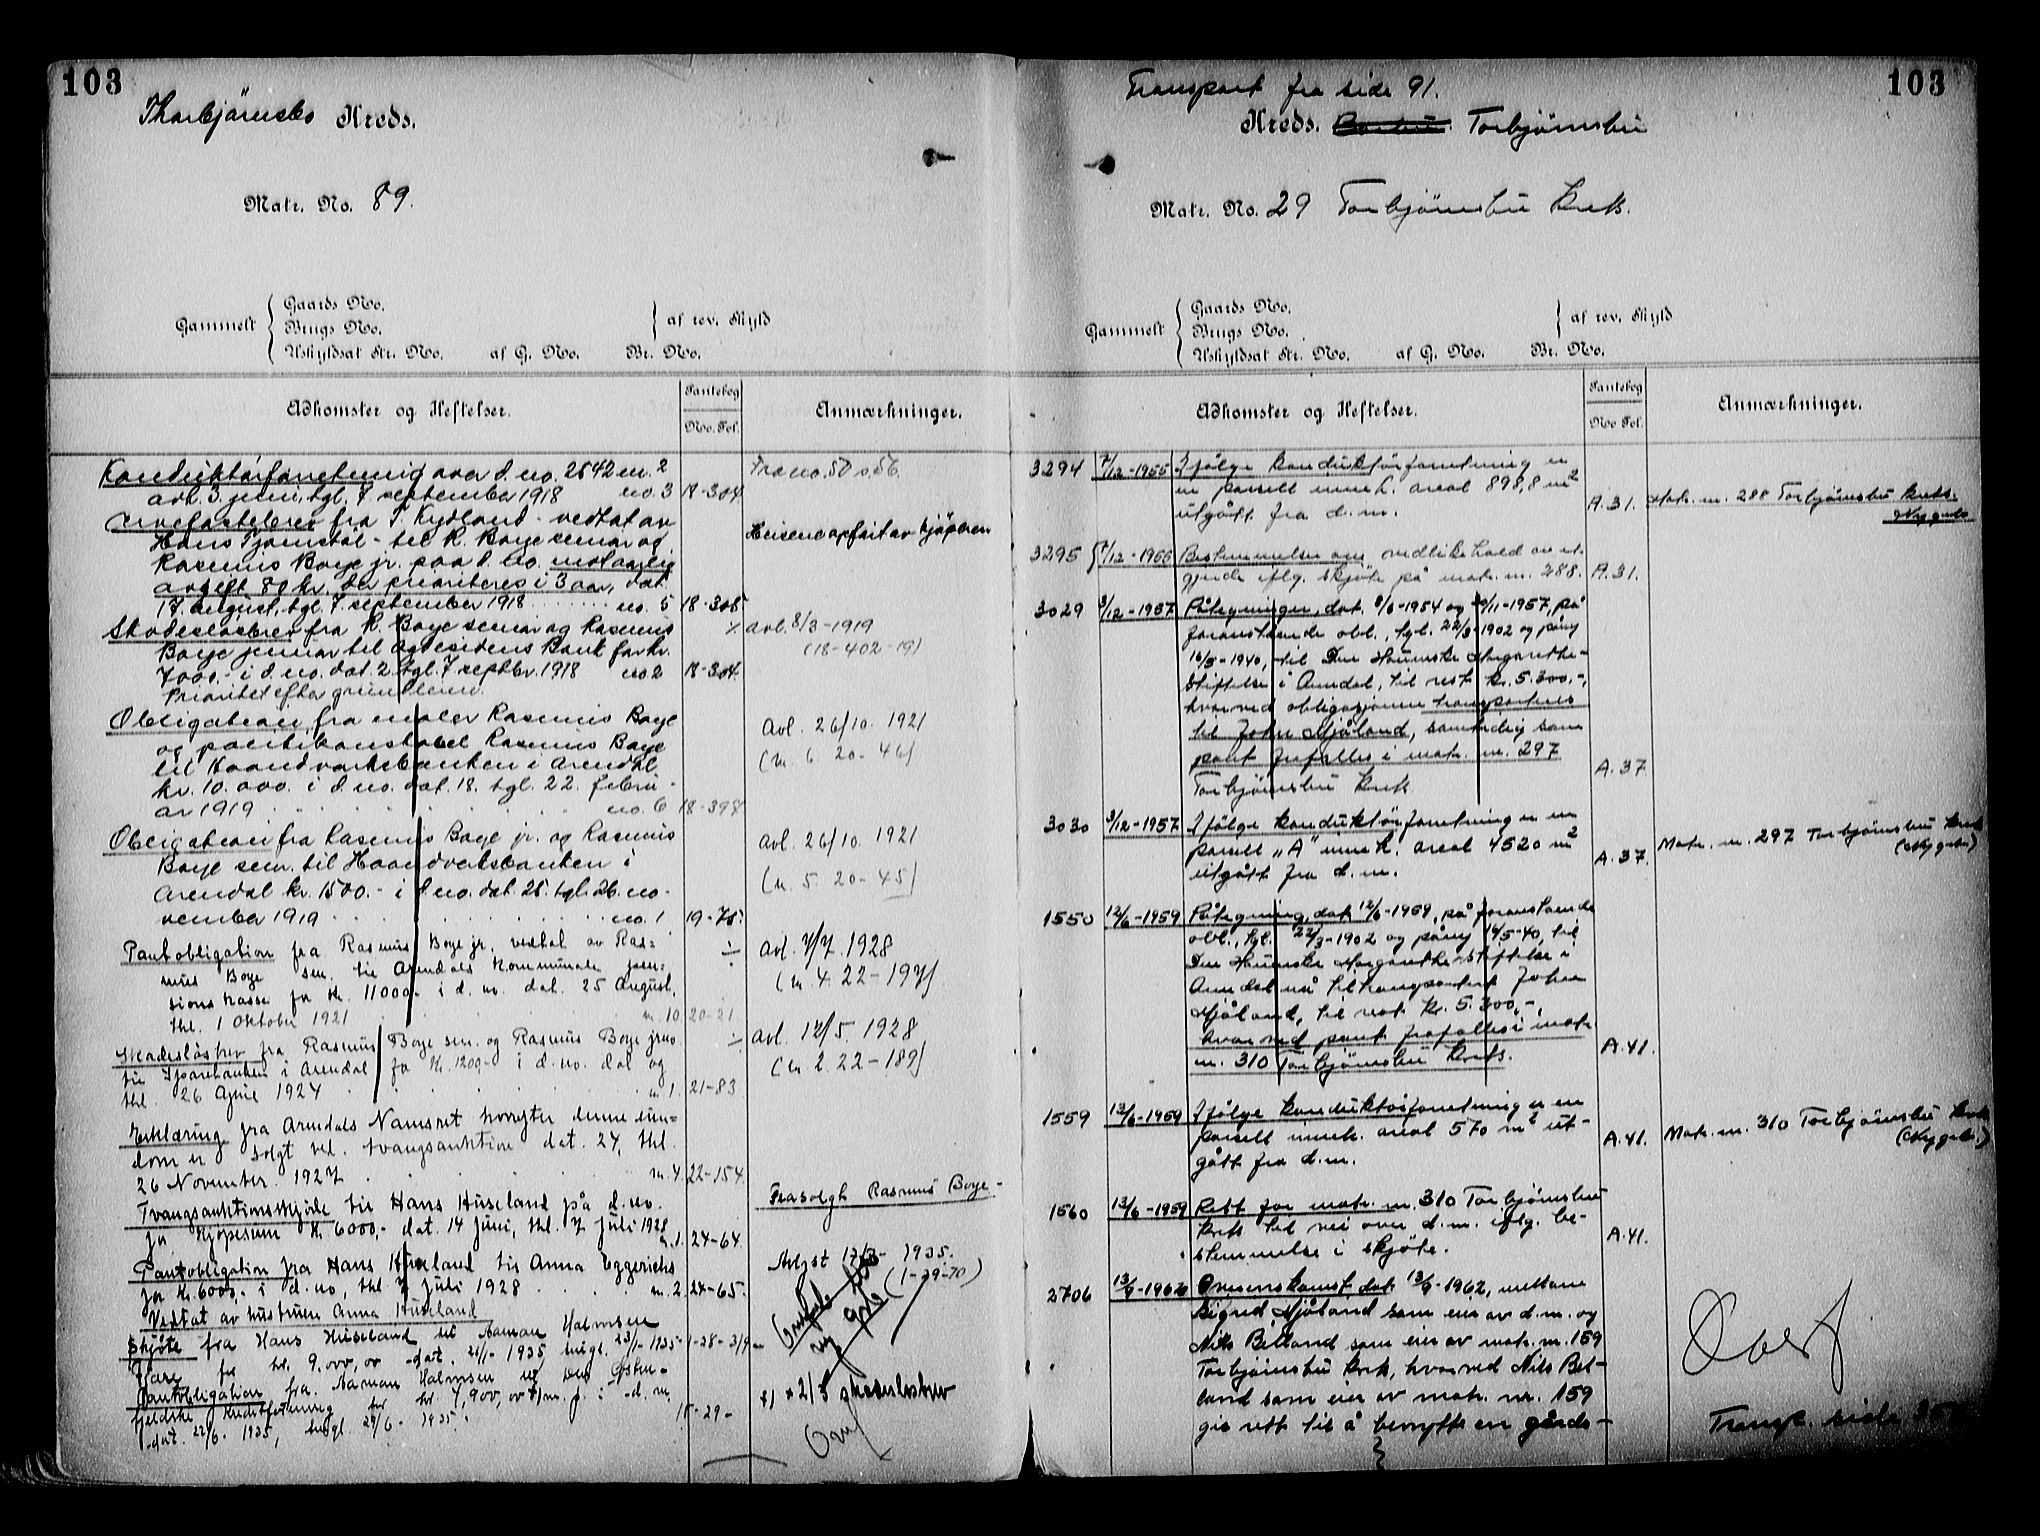 103
Thorbjørnsbo Kreds.
Matr. No. 89.
Gammelt
Gaards No.
Brugs No.
Uskyldsat Str. No. af G. No. Br. No.
af rev. Skyld
Adkomster og Heftelser.
Pantebog
No. Fol.
Anmærkninger.
Konduktørforretning over d. no. 2542 m. 2
avh. 3. juni, tgl. 7 september 1918 no. 3 18-304
Fra no. 50 s. 56
Arvefæstebrev fra T. Kydland - vedtat av
Hans Tjomstøl - til R. Boye senior og
Heisene opført av kjøperen
Rasmus Boye jr. paa d. no. mot aarlig
avgift 80 kr. der prioriteres i 3 aar, dat.
17. august, tgl. 7. september 1918 no. 5 18-305
Skadesløsbrev fra R. Boye senior og Rasmus
Boye junior til Agdesidens Bank for kr.
7000.- i d. no. dat. 2. tgl. 7 septbr. 1918 no 2 18-304
Prioritet efter grundleien.
avl. 8/3-1919
(18-402-19)
Obligation fra maler Rasmus Boye
og politikonstabel Rasmus Boye
til Haandverksbanken i Arendal
kr. 10.000. i d. no. dat. 18. tgl. 22. febru-
ar 1919 no. 6 18-397
Avl. 26/10. 1921
(n. 6 20-46)
Obligation fra Rasmus Boye jr. og Rasmus
Boye senr. til Haandverksbanken i
Arendal kr. 1500.- i d. no. dat. 25. tgl. 26. no-
vember 1919 no. 1 19-75
avl. 26/10 1921
(n. 5. 20-45)
Pantobligation fra Rasmus Boye jr., vedtat av Ras=
mus Boye sen. til Arendals Kommunale pen=
sionskasse for kr. 11000.- i d. no. dat. 25 August,
thl. 1 Oktober 1921 n. 10 20-21
avl. 7/7. 1928
(n. 4. 22-197)
Skadesløsbrev fra Rasmus Boye sen. og Rasmus Boye jun.
til Sparebanken i Arendal for kr. 1200.- i d. no. dat og
thl. 26 April 1924 n. 1. 21-83
avl. 12/5. 1928
(n. 2. 22-189)
Erklæring fra Arendals Namsret hvorefter denne eien=
dom er solgt ved tvangsauktion dat. 24, thl.
26 November 1927 n. 4. 22-154
Tvangsauktionsskjøde til Hans Huseland på d. no.
for kjøpesum kr. 6000,- dat. 14 juni, thl. 7 juli 1928 n. 1. 24-64
Frasolgt Rasmus Boye -
Pantobligation fra Hans Huseland til Anna Eggerichs
for kr. 6000,- i d. no, thl. 7 juli 1928 n. 2. 24-65.
Vedtat av hustruen Anna Huseland
Avlyst 13/3- 1935.
(1-29-70)
Skjøte fra Hans Huseland til Aaman Halmsen
for kr. 9.000,00 dat. 21/1- 1935, tingl. 23/1-1935 1-28-319
Pantobligation fra Aaman Halmsen til Den Østen-
fjeldske Kreditforening for kr. 7,900,00
dat. 22/6- 1935, tingl. 29/6- 1935. 15-29-
2/5 skadesløsbrev
Overf
103
Transport fra side 91.
Kreds. Torbjørnsbu
Matr. No. 29 Torbjørnsbu Krets.
Gammelt
Gaards No.
Brugs No.
Uskyldsat Str. No. af G. No. Br. No.
af rev. Skyld
Adkomster og Heftelser.
Pantebog
No Fol.
Anmærkninger.
3294 7/12-1955 Ifølge konduktørforretning er
en parsell inneh. areal 898,8 m²
utgått fra d.m. A.31.
Matr. nr. 288 Torbjørnsbu krets.
Nygads
3295 7/12-1955 Bestemmelse om vedlikehold av et
gjerde iflg. skjøte på matr. nr. 288. A.31.
3029 3/12-1957 Påtegninger, dat. 8/6-1954 og 20/11-1957, på
foranstående obl., tgl. 22/3-1902 og påny
16/5-1940, til Den Houmske Margarethe-
stiftelse i Arendal, til rest kr. 5.300,-,
hvorved obligasjonen transporteres
til John Mjåland, samtidig som
pant frafalles i matr. nr. 297
Torbjørnsbu krets. A.37
3030 3/12-1957 Ifølge konduktørforretning er en
parsell „A" inneh. areal 4520 m²
utgått fra d.m. A.37.
Matr. nr. 297 Torbjørnsbu krets
1550 12/6-1959 Påtegning, dat. 12/6-1959, på foranstående
obl., tgl. 22/3-1902 og påny 16/5-40, til
Den Houmske Margarethe-stiftelse i
Arendal nå til transportert John
Mjåland, til rest kr. 5.300,-,
hvorved pant frafalles i matr.
nr. 310 Torbjørnsbu krets. A.41.
1559 13/6-1959 Ifølge konduktørforretning er en
parsell inneh. areal 570 m² ut-
gått fra d.m. A.41.
Matr. nr. 310 Torbjørnsbu krets
1560 13/6-1959 Rett for matr. nr. 310 Torbjørnsbu
krets til vei over d.m. iflg. be-
stemmelse i skjøte. A.41.
2706 13/9-1962 Overenskomst, dat. 13/9-1962, mellom
Sigrid Mjåland som eier av d.m. og
Nils Beiland som eier av matr. nr. 159
Torbjørnsbu krets, hvorved Nils Bei-
land som eier av matr. nr. 159
gis rett til å benytte en gårds-
Overf
Transp. side